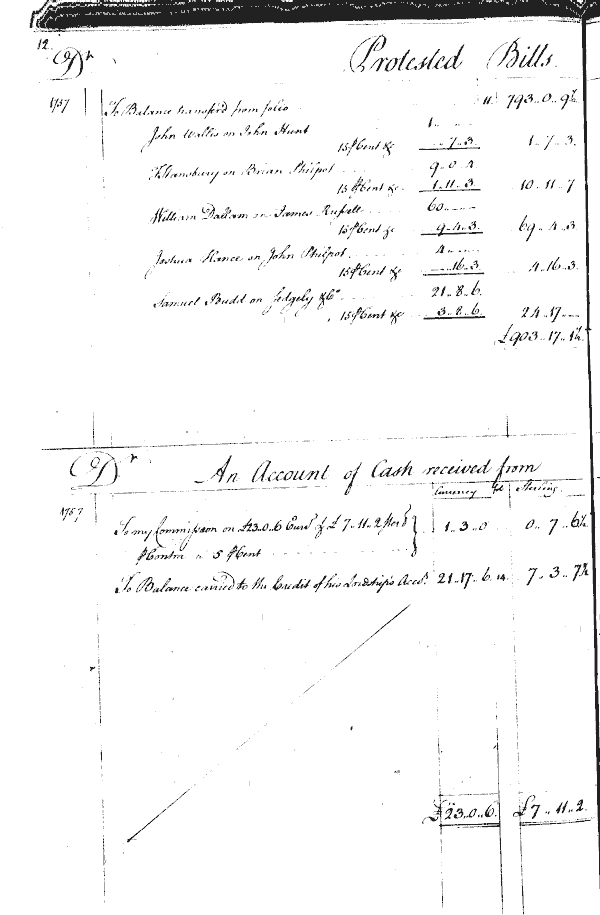 12.
Dr Protested Bills
1757 To Balance transferd from folio 11. 793..0..9½
John Wallis on John Hunt 1..
15 ⅌Cent &c ..7..3. 1..7..3.
T. Stansbury on Brian Philpot 9..0..4
15 ⅌Cent &c 1..11..3 10..11..7
William Dallam on James Russell 60
15 ⅌Cent &c 9..4..3. 69..4..3
Joshua Hance on John Philpot 4
15 ⅌Cent &c ..16..3 4..16..3.
Samuel Budd on Sedgely &Co 21..8..6.
15 ⅌Cent &c 3..8..6 24..17..
£903..17..1½
Dr An Account of Cash received from
Currency fol Sterling
1757 To my Commission on £23..0..6 Curry & £7..11..2 Sterg 1..3..0 0..7..6½
⅌Contra a 5 ⅌Cent
To Balance carried to the Credit of his Lordship's Acct. 21..17..6. 14. 7..3..7½
£23..0..6. £7..11..2.